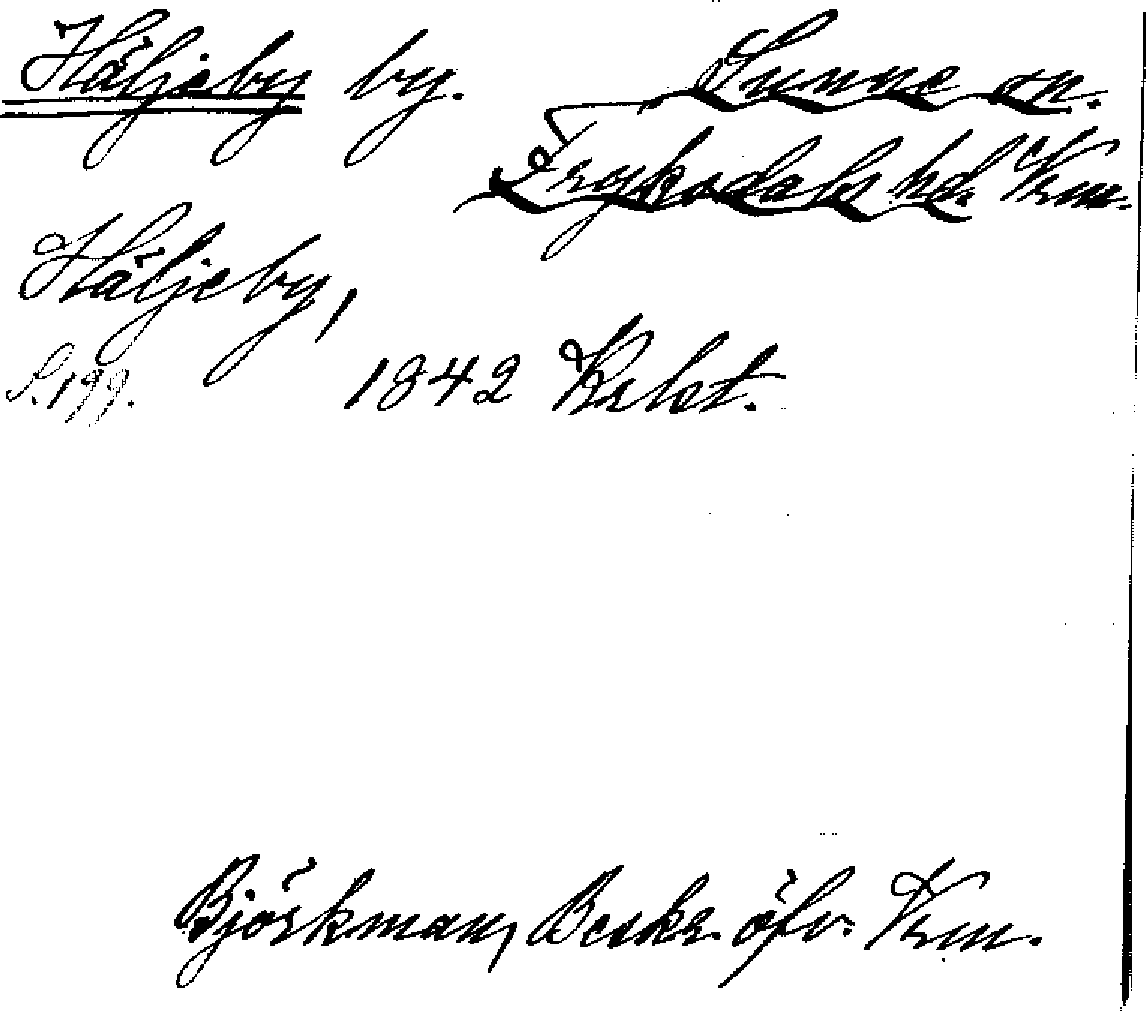 Häljeby by. Sunne sn.
Fryksdals hd. Vrm.
Häljeby,
S. 199. 1842 Krlst.
Björkman, Beskr. öfv. Vrm.